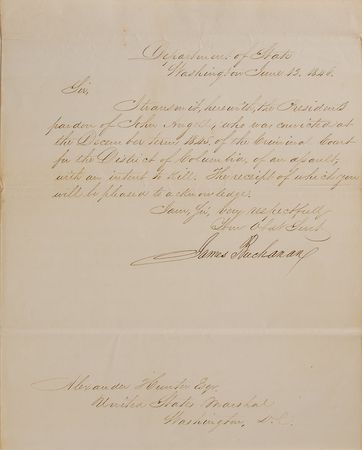 Department of State
Washington June 12. 1846.
Sir,
I transmit, herewith, the President's
pardon of John Angel, who was convicted at
the December term, of the Criminal Court
for the District of Columbia, of an assault,
with an intent to kill. The receipt of which you
will be pleased to acknowledge.
I am, Sir, very respectfully
Your Obdt Servt
James Buchanan
Alexander Hunter Esqr
United States Marshal
Washington, D.C.